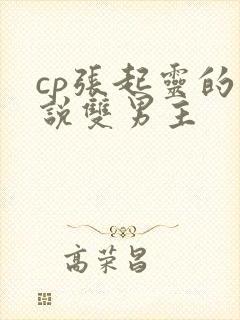 cp張起靈的
說雙男主
高荣昌